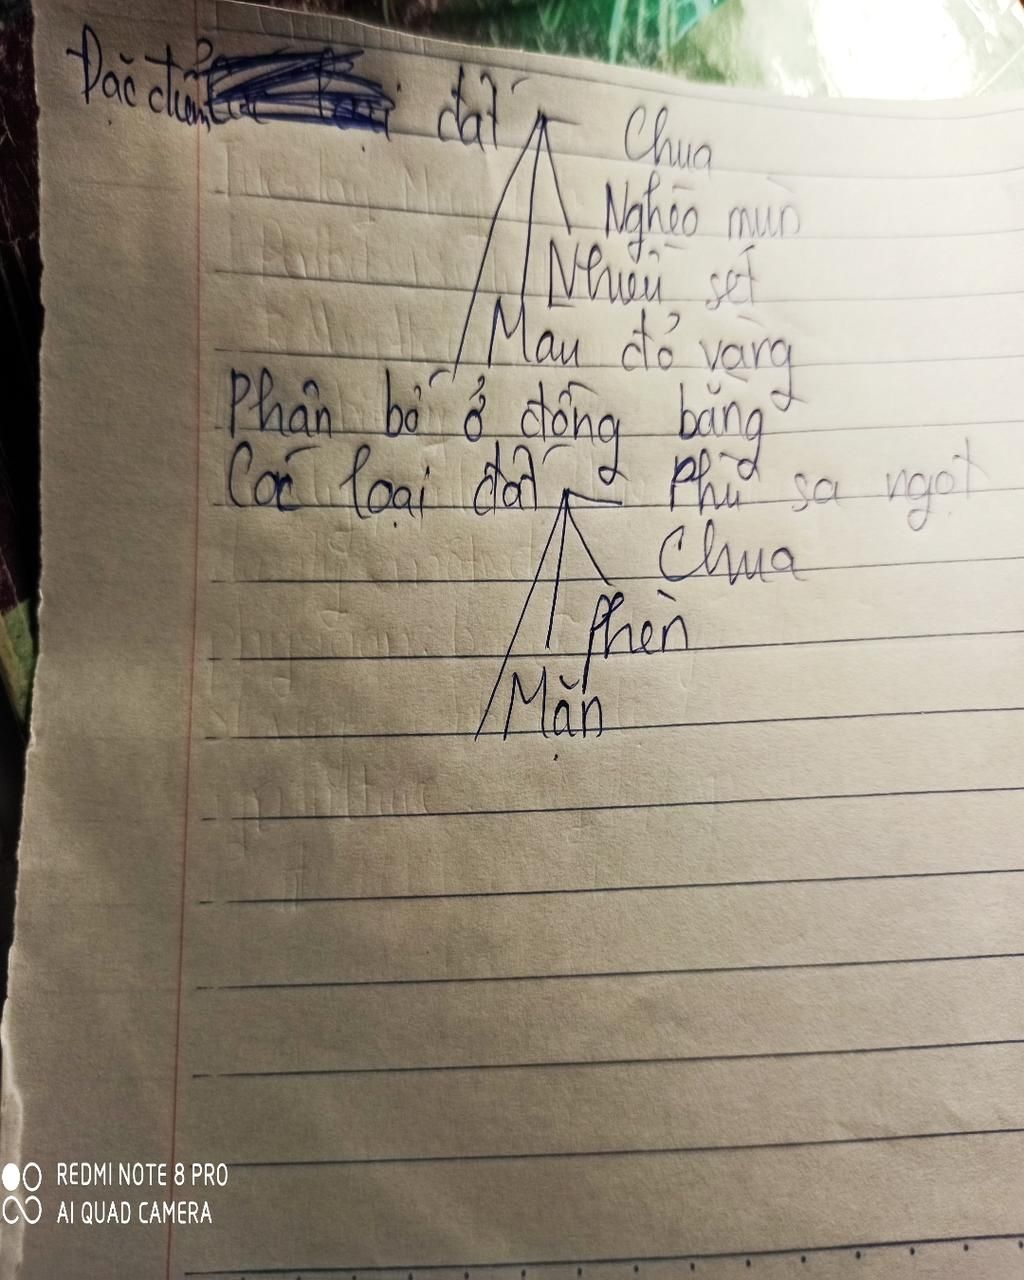 Đặc điểm đất Chua
Nghèo mùn
Nhiều sét
Màu đỏ vàng
Phân bố ở đồng bằng
Các loại đất Phù sa ngọt
Chua
Phèn
Mặn
REDMI NOTE 8 PRO
AI QUAD CAMERA